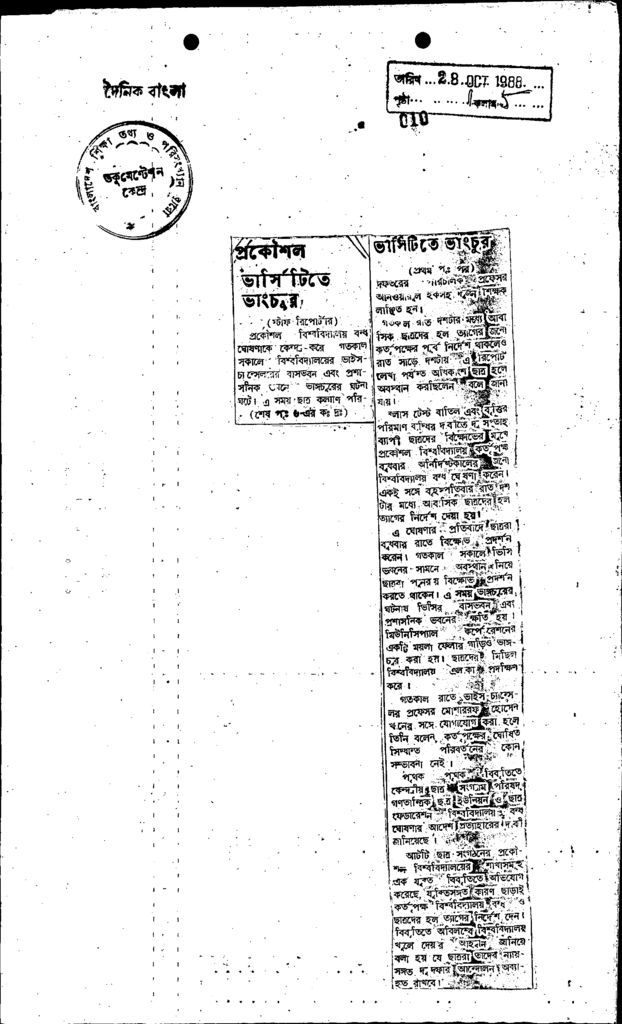 দৈনিক বাংলা
তারিখ ... 28 OCT 1988 ...
পৃষ্ঠা... ... কলাম 5 ...
010
বাংলাদেশ শিক্ষা তথ্য ও পরিসংখ্যান ব্যুরো
ডকুমেন্টেশন
কেন্দ্র
প্রকৌশল
ভার্সিটিতে
ভাংচুর
(স্টাফ রিপোর্টার)
প্রকৌশল বিশ্ববিদ্যালয় বন্ধ
ঘোষণাকে কেন্দ্র করে গতকাল
সকালে বিশ্ববিদ্যালয়ের ভাইস-
চান্সেলরের বাসভবন এবং প্রশা-
সনিক ভবনে ভাঙ্গচুরের ঘটনা
ঘটে। এ সময় ছাত্র কল্যাণ পরি-
(শেষ পৃঃ ৬-এর কঃ দ্রঃ)
ভার্সিটিতে ভাংচুর
(প্রথম পৃঃ পর)
দফতরের পরিচালক প্রফেসর
আনওয়ারুল হকসহ দু'জন শিক্ষক
লাঞ্ছিত হন।
গতকাল রাত দশটার মধ্যে আবা
সিক ছাত্রদের হল ত্যাগের জন্যে
কর্তৃপক্ষের পূর্ব নির্দেশ থাকলেও
রাত সাড়ে দশটায় এ রিপোর্ট
লেখা পর্যন্ত অধিকাংশ ছাত্র হলে
অবস্থান করছিলেন বলে জানা
যায়।
ক্লাস টেস্ট বাতিল এবং বৃত্তির
পরিমাণ বৃদ্ধির দাবীতে দু সপ্তাহ
ব্যাপী ছাত্রদের বিক্ষোভের মুখে
প্রকৌশল বিশ্ববিদ্যালয় কর্তৃপক্ষ
বুধবার অনির্দিষ্টকালের জন্যে
বিশ্ববিদ্যালয় বন্ধ ঘোষণা করেন।
একই সঙ্গে বৃহস্পতিবার রাত দশ
টার মধ্যে আবাসিক ছাত্রদের হল
ত্যাগের নির্দেশ দেয়া হয়।
এ ঘোষণার প্রতিবাদে ছাত্ররা
বুধবার রাতে বিক্ষোভ প্রদর্শন
করেন। গতকাল সকালে ভিসি
ভবনের সামনে অবস্থান নিয়ে
ছাত্ররা পুনরায় বিক্ষোভ প্রদর্শন
করতে থাকেন। এ সময় ভাঙ্গচুরের
ঘটনায় ভিসির বাসভবন এবং
প্রশাসনিক ভবনের ক্ষতি হয়।
মিউনিসিপ্যাল কর্পোরেশনের
একটি ময়লা ফেলার গাড়িও ভাঙ্গ-
চুর করা হয়। ছাত্রদের মিছিল
বিশ্ববিদ্যালয় এলাকা প্রদক্ষিণ
করে।
গতকাল রাতে ভাইস চ্যান্সে-
লর প্রফেসর মোশাররফ হোসেন
খানের সঙ্গে যোগাযোগ করা হলে
তিনি বলেন, কর্তৃপক্ষের ঘোষিত
সিদ্ধান্ত পরিবর্তনের কোন
সম্ভাবনা নেই।
পৃথক পৃথক বিবৃতিতে
কেন্দ্রীয় ছাত্র সংগ্রাম পরিষদ,
গণতান্ত্রিক ছাত্র ইউনিয়ন ও ছাত্র
ফেডারেশন বিশ্ববিদ্যালয় বন্ধ
ঘোষণার আদেশ প্রত্যাহারের দাবী
জানিয়েছে।
আটটি ছাত্র সংগঠনের প্রকৌ-
শল বিশ্ববিদ্যালয়ের শাখাসমূহ
এক যুক্ত বিবৃতিতে অভিযোগ
করেছে, যুক্তিসঙ্গত কারণ ছাড়াই
কর্তৃপক্ষ বিশ্ববিদ্যালয় বন্ধ ও
ছাত্রদের হল ত্যাগের নির্দেশ দেন।
বিবৃতিতে অবিলম্বে বিশ্ববিদ্যালয়
খুলে দেয়ার আহবান জানিয়ে
বলা হয় যে ছাত্ররা তাদের ন্যায়-
সঙ্গত দু দফার আন্দোলন অব্যা-
হত রাখবে।